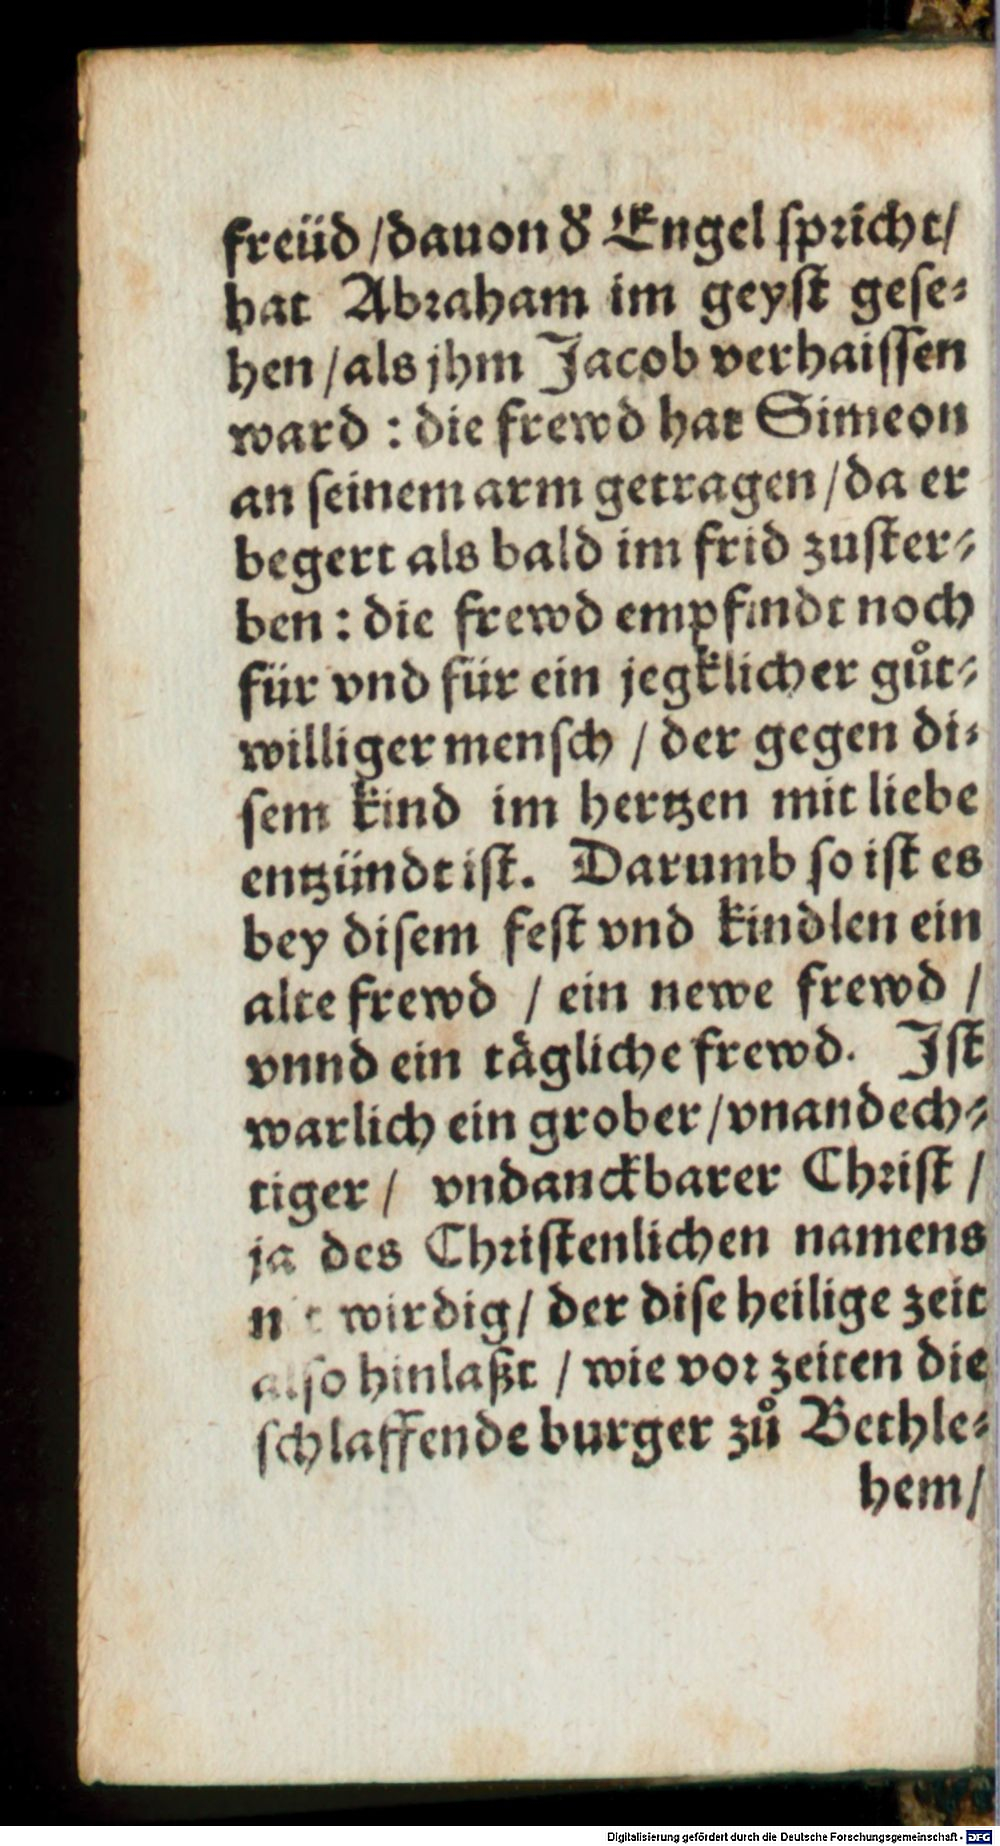 freüd / dauon d' Engel spricht /
hat Abraham im geyst gese⸗
hen / als jhm Jacob verhaissen
ward : die frewd hat Simeon
an seinem arm getragen / da er
begert als bald im frid zuster⸗
ben : die frewd empfindt noch
für vnd für ein jegklicher gůt⸗
williger mensch / der gegen di⸗
sem kind im hertzen mit liebe
entzündt ist. Darumb so ist es
bey disem fest vnd kindlen ein
alte frewd / ein newe frewd /
vnnd ein tägliche frewd. Jst
warlich ein grober / vnandech⸗
tiger / vndanckbarer Christ /
ja des Christenlichen namens
nit wirdig / der dise heilige zeit
also hinlaßt / wie vor zeiten die
schlaffende burger zů Bethle⸗
hem /
Digitalisierung gefördert durch die Deutsche Forschungsgemeinschaft - DFG